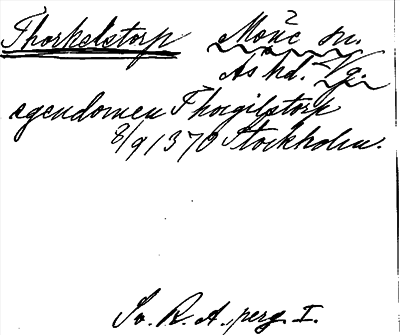 Thorkelstorp Mönē sn.
As hd. Vg.
egendomen Thorgilstorp
8/9 1370 Stockholm.
Sv. R. A. perg. I.